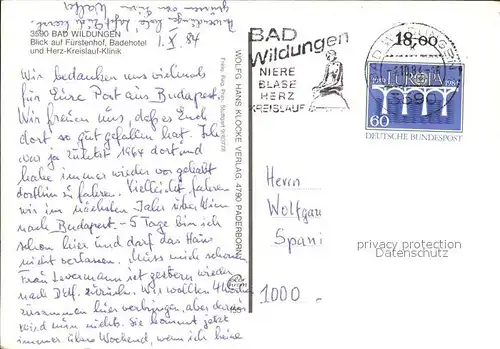 grüssen von Ihrem Walter
1. X. 84
3590 BAD WILDUNGEN
Blick auf Fürstenhof, Badehotel
und Herz-Kreislauf-Klinik
Wir bedanken uns vielmals
für Eure Post aus Budapest.
Wir freuen uns, daß es Euch
dort so gut gefallen hat. Ich
war ja zuletzt 1964 dort und
habe immer wieder vor gehabt
dorthin zu fahren. Vielleicht fahren
wir im nächsten Jahr über Wien
nach Budapest. - 5 Tage bin ich
schon hier und darf das Haus
nicht verlassen. Muss mich schonen
Frau Levermann ist gestern wieder
nach Dtld. zurück. Wir wollten 4 Wochen
zusammen hier verbringen, aber daraus
wird nun nichts. Sie kommt jetzt
immer übers Wochend, wenn ich keine
WOLFG. HANS KLOCKE VERLAG, 4790 PADERBORN
BAD
Wildungen
NIERE
BLASE
HERZ
KREISLAUF
BAD WILDUNGEN
18,00
EUROPA
3590
60
DEUTSCHE BUNDESPOST
Herrn
Wolfgang
Spani
1000
privacy protection
Datenschutz